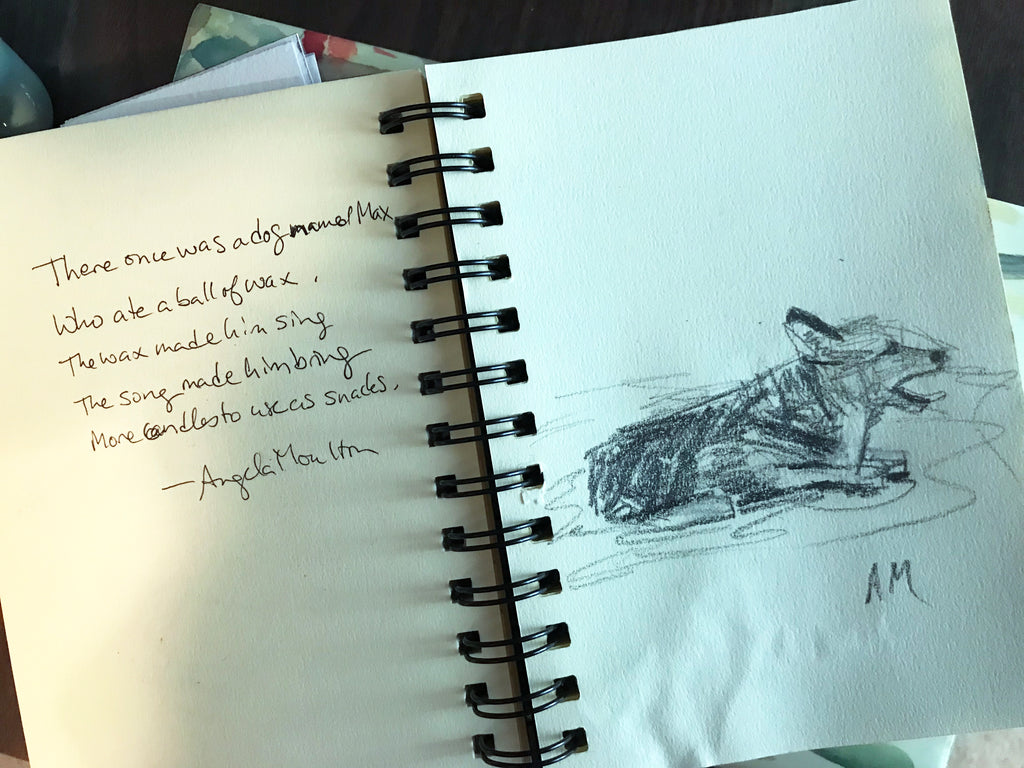 There once was a dog named Max
Who ate a ball of wax.
The wax made him sing
The song made him bring
More candles to use as snacks.
—Angela Moulton
AM